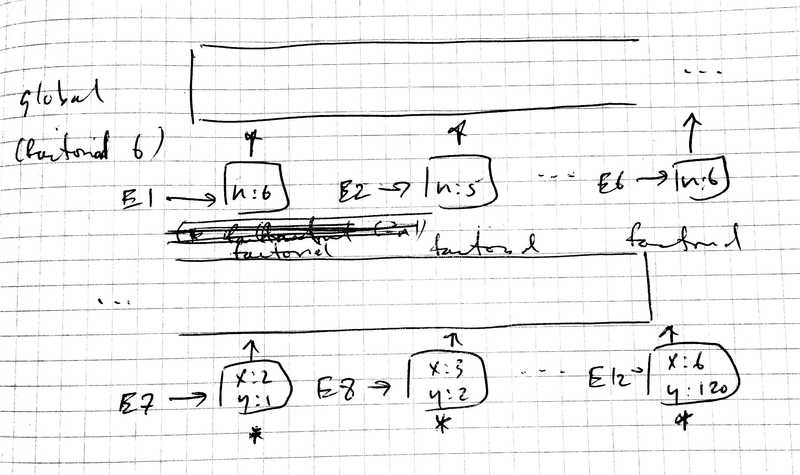 ...
global
(factorial 6)
E1 → n:6 E2 → n:5 ... E6 → n:6
factorial factorial factorial
...
E7 → x:2 y:1 E8 → x:3 y:2 ... E12 → x:6 y:120
* * *